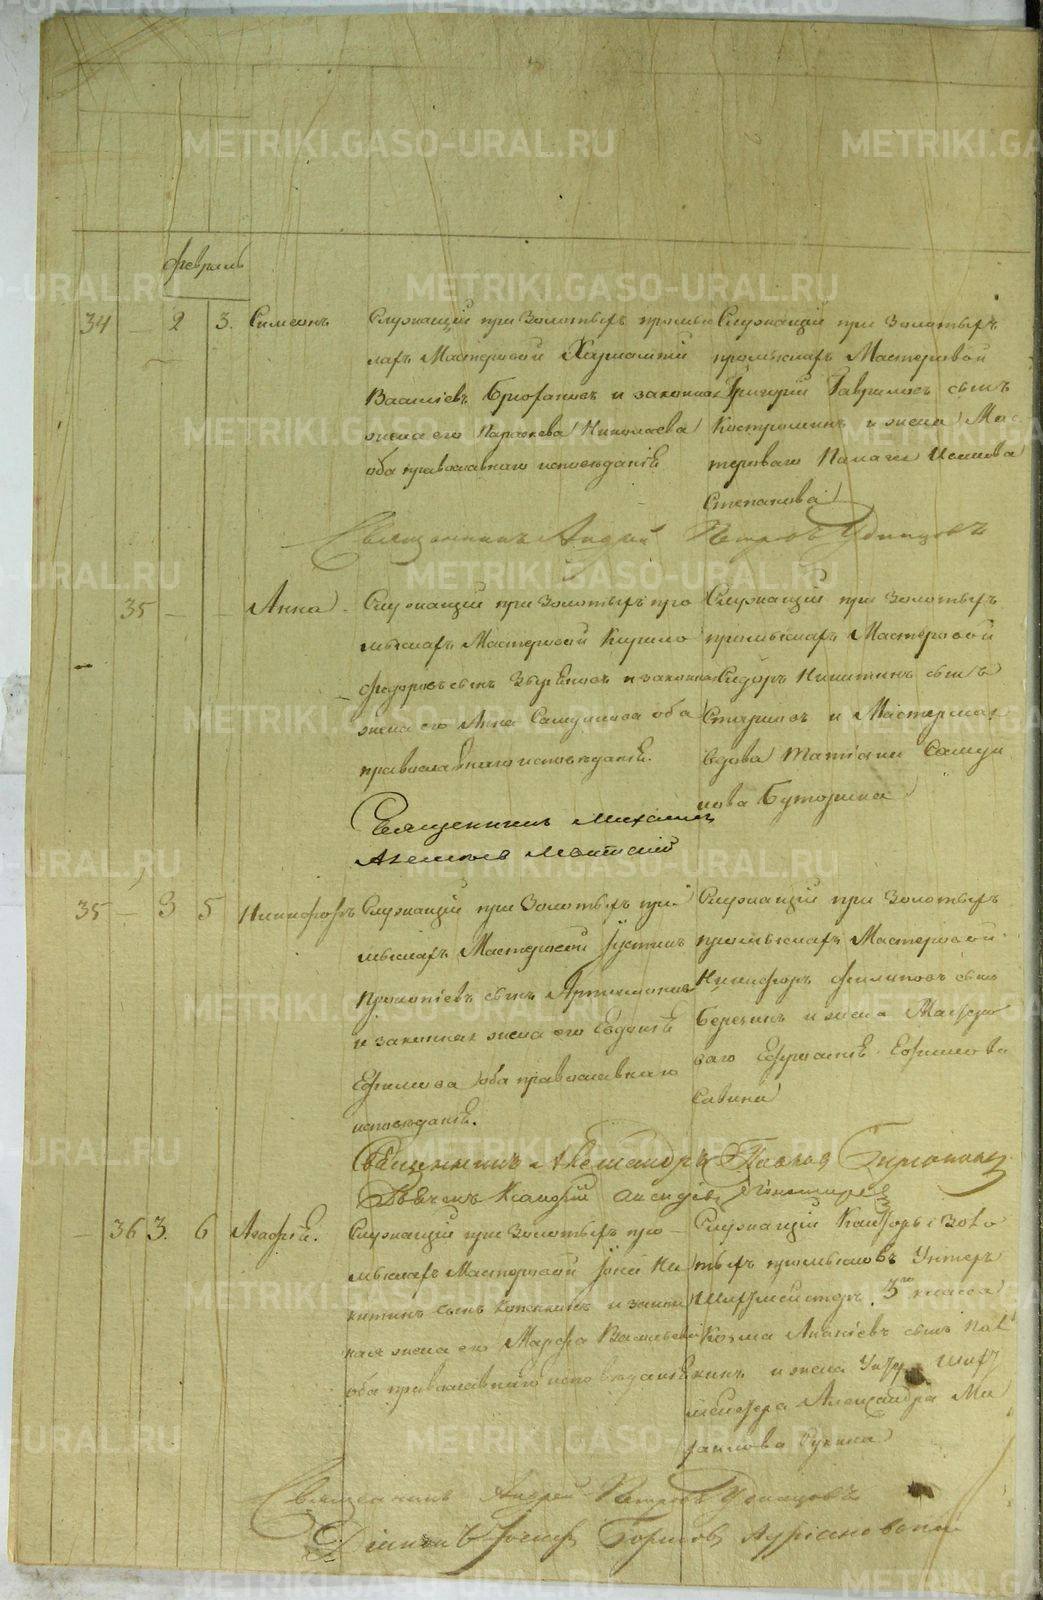 Февраль
34 2 3. Симеонъ
Служащій при Золотыхъ промы
слахъ Мастеровой Харлампій
Василіевъ и законная
жена его Параскева Николаева
оба православнаго исповѣданія
Служащій при Золотыхъ
промыслахъ Мастеровой
Григорій Гавриловъ сынъ
Костроминъ и жена Мас
тероваго Пелагея
Степанова
Священникъ Андрей Петровъ Удинцовъ
35 Анна
Служащій при Золотыхъ про
мыслахъ Мастеровой Кирило
Федоровъ сынъ и законная
жена его Анна оба
православнаго исповѣданія.
Служащій при Золотыхъ
промыслахъ Мастеровой
Сидоръ Никитинъ сынъ
и Мастерская
вдова Татіана Самуи
лова Буторина
Священникъ Михаилъ
35 3 5 Никифоръ
Служащій при Золотыхъ про
мыслахъ Мастеровой Іустинъ
Прокопіевъ сынъ
и законная жена его Евдокія
Ефимова оба православнаго
исповѣданія.
Служащій при Золотыхъ
промыслахъ Мастеровой
Никифоръ Филиповъ сынъ
и жена Мастеро
ваго Ефросинія Ефимова
Савина
Священникъ Александръ Павловъ
36 3. 6 Агафія.
Служащій при Золотыхъ про
мыслахъ Мастеровой Іона Ни
китинъ сынъ и закон
ная жена его Марфа Васильева
оба православнаго исповѣданія
Служащій Конторы Золо
тыхъ промысловъ Унтеръ
Шихтмейстеръ 3го класса
Козма Ананіевъ сынъ
и жена Унтеръ Шихт
мейстера Александра Ми
хаилова
Священникъ Андрей Петровъ Удинцовъ
METRIKI.GASO-URAL.RU